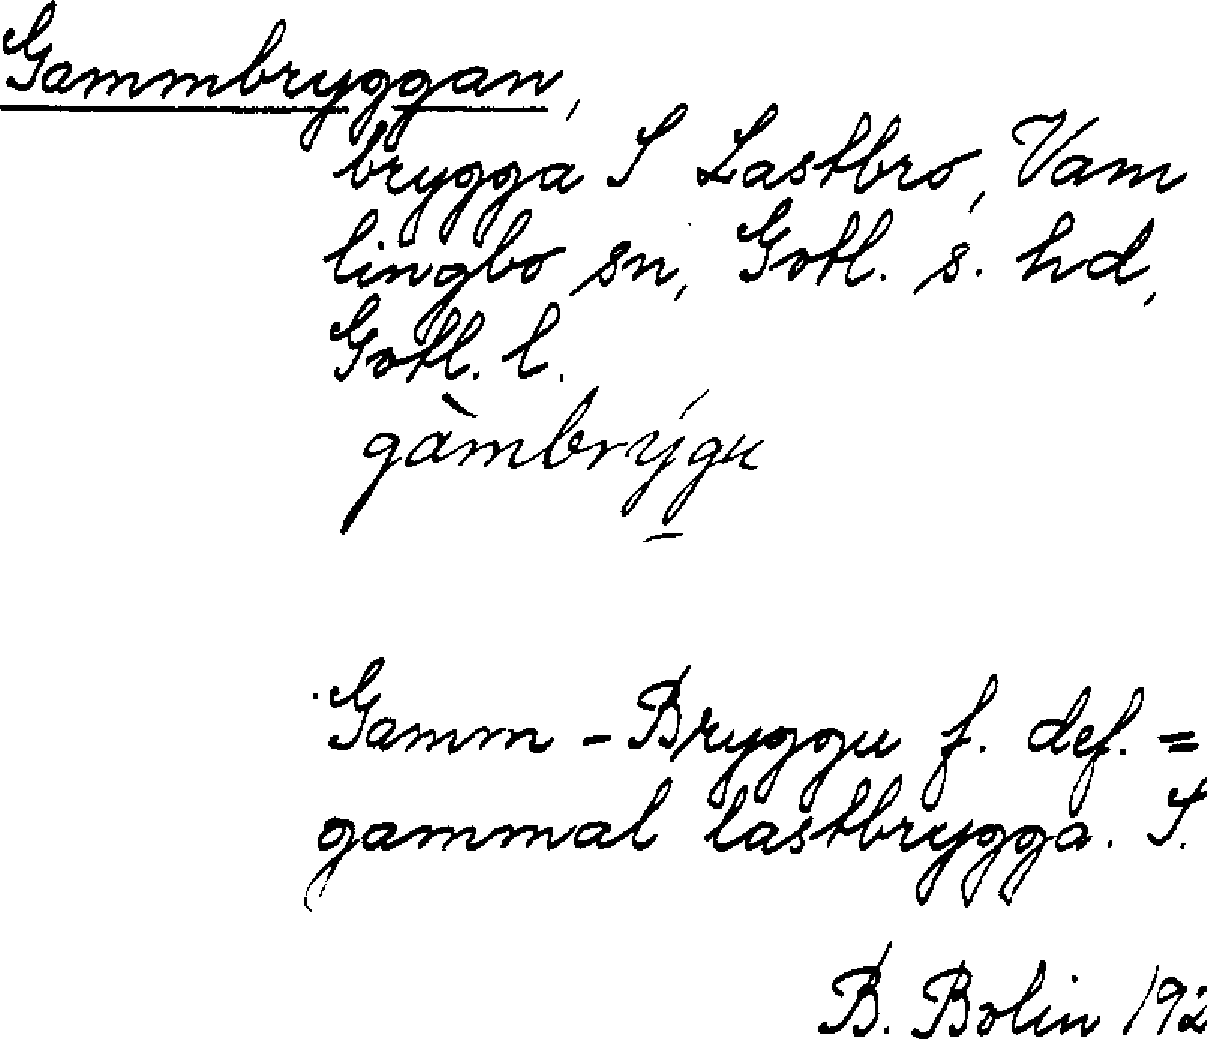 Gammbryggan,
brygga S Lastbro, Vam
lingbo sn, Gotl. s. hd,
Gotl. l.
gàmbrýgu
Gamm-Bryggu f. def. =
gammal lastbrygga. S.
B. Bolin 192